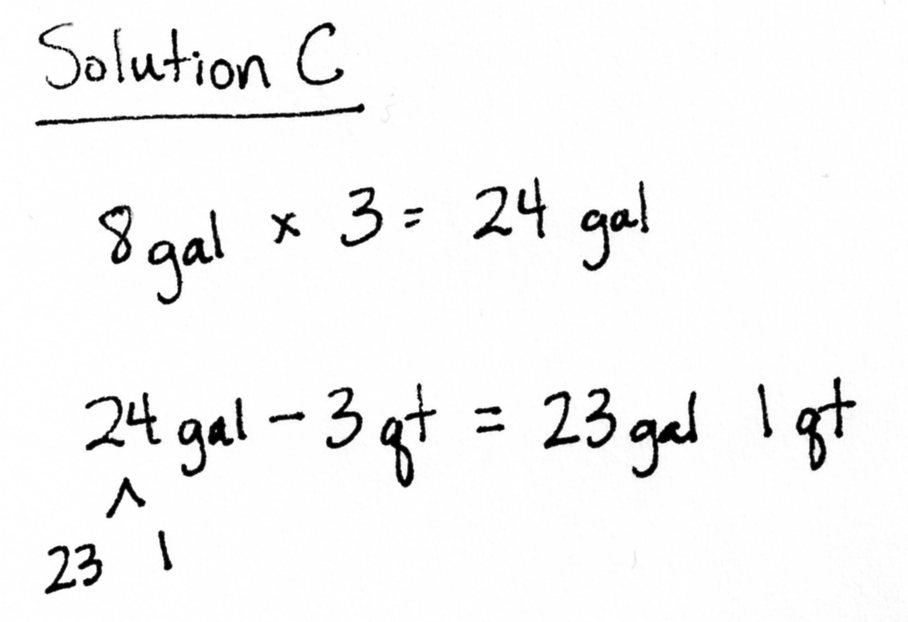 Solution C
8 gal × 3 = 24 gal
24 gal - 3 qt = 23 gal 1 qt
^
23 1